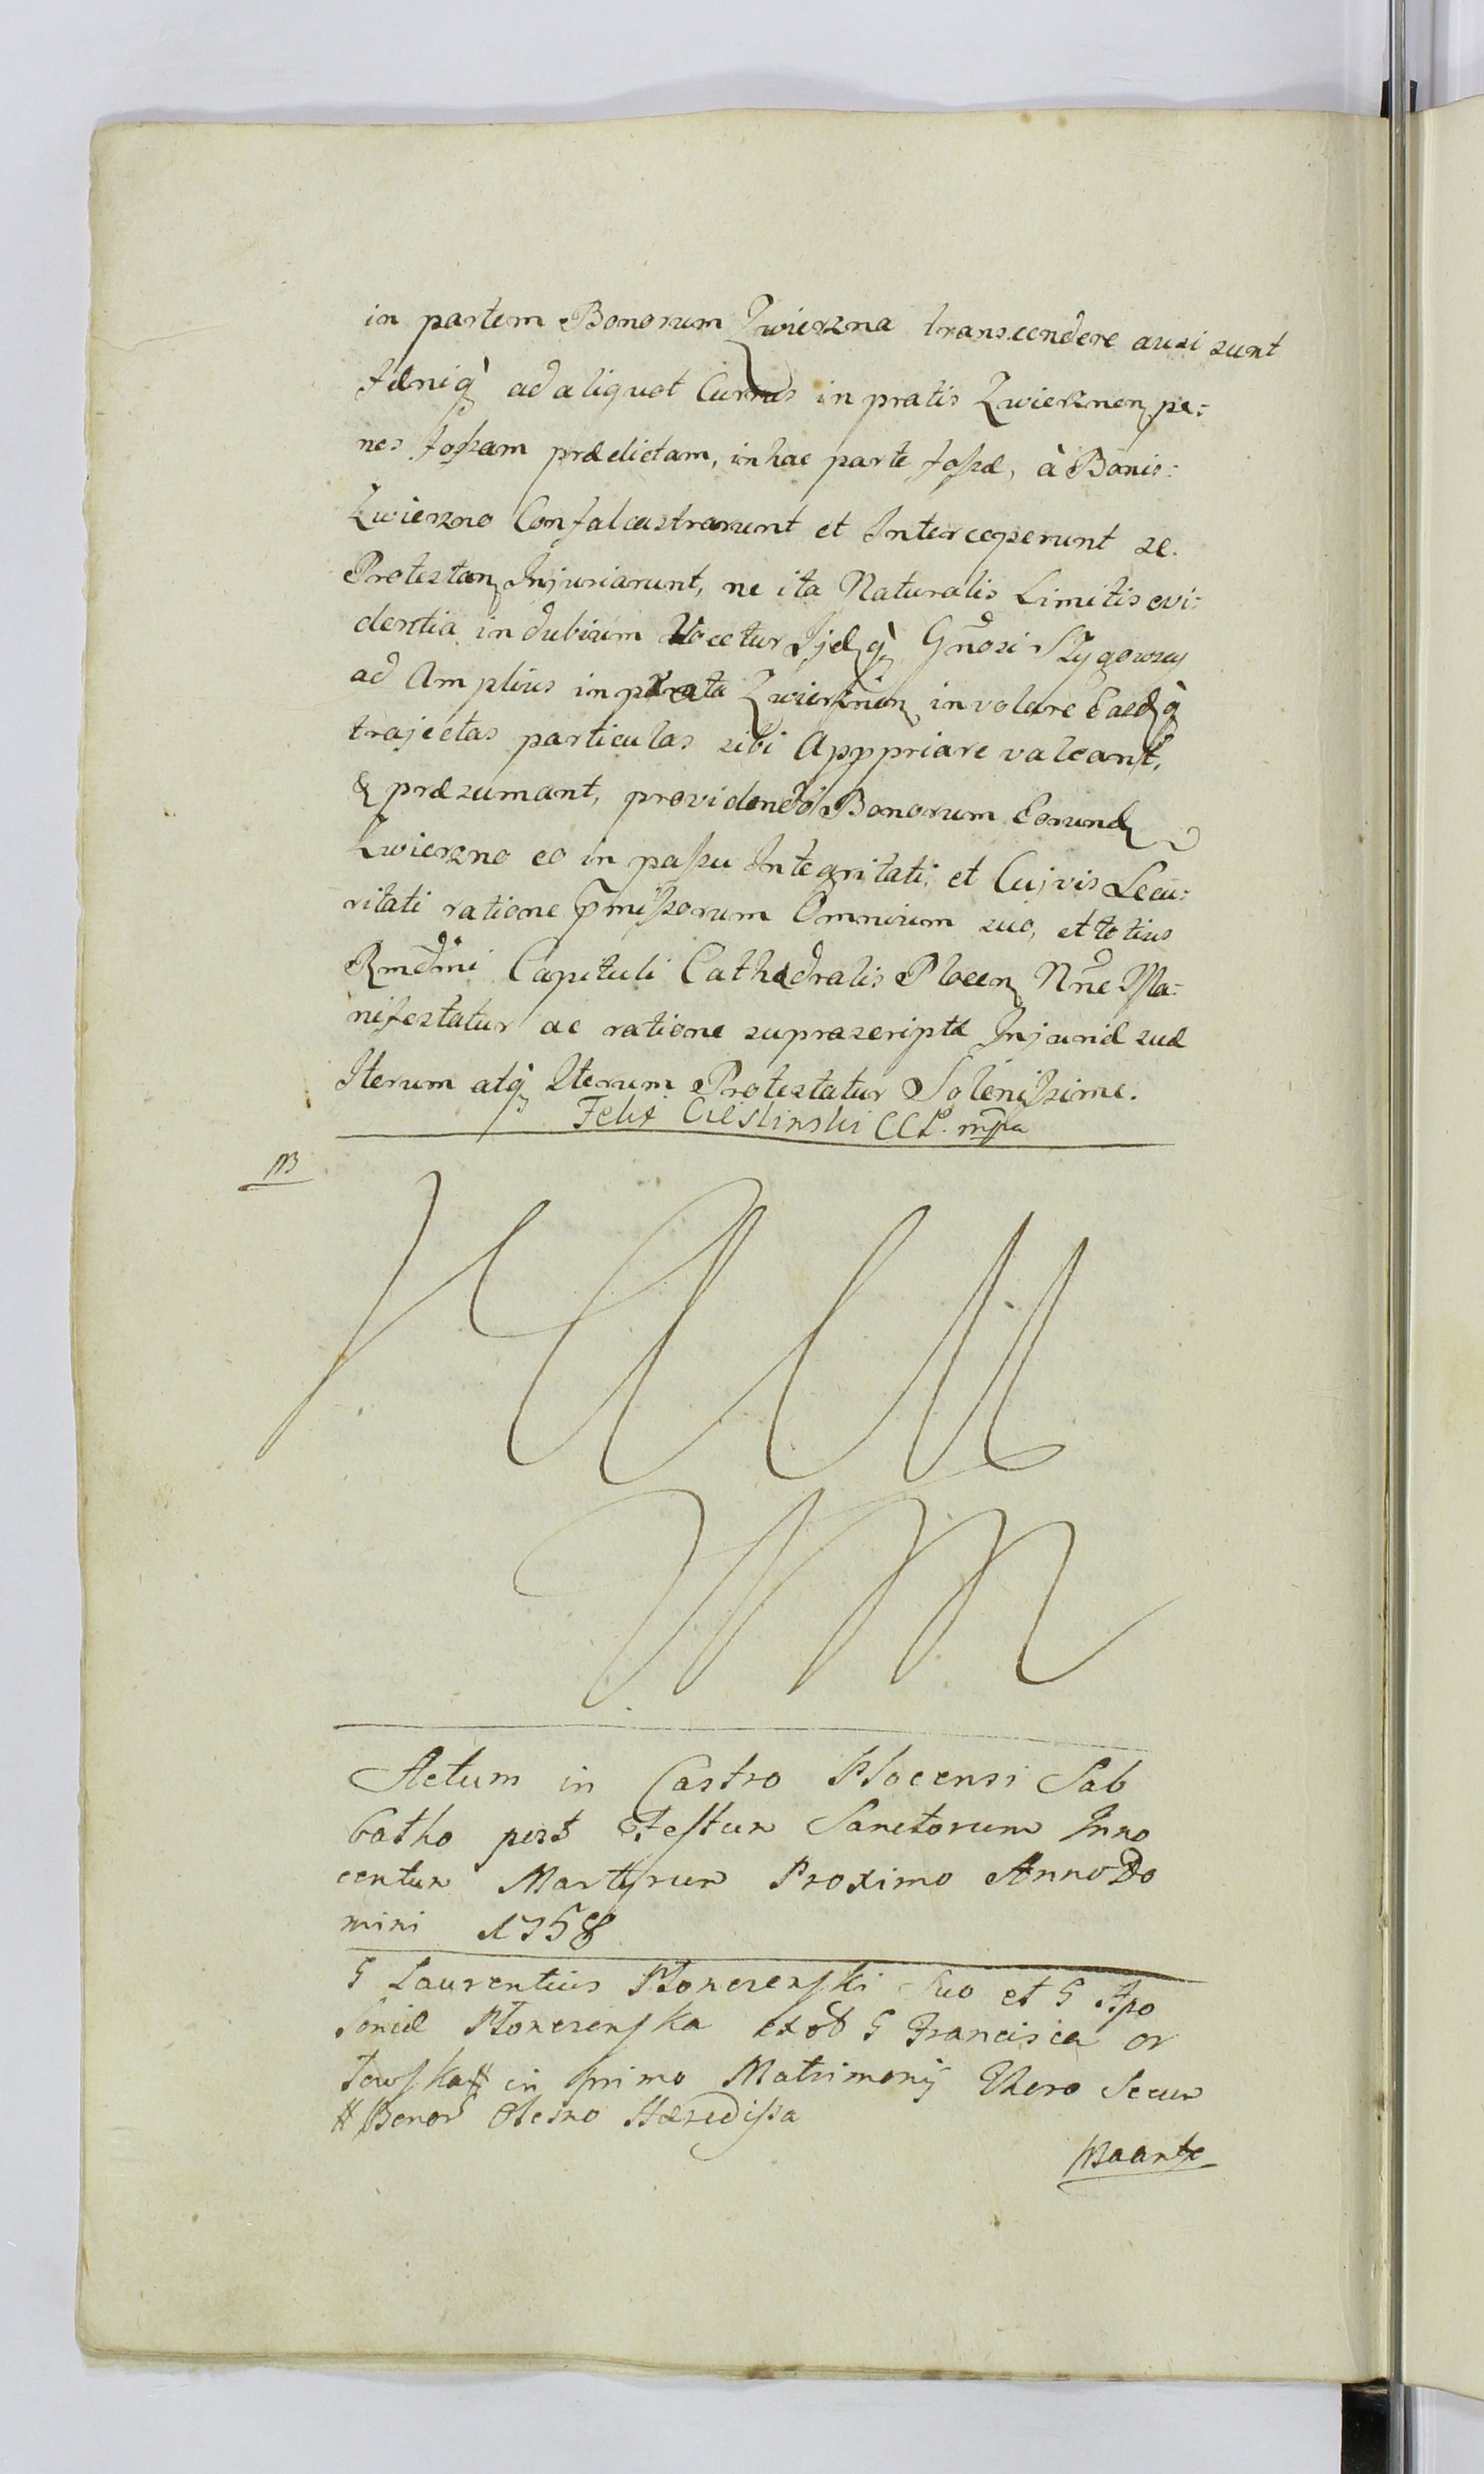 in partem Bonorum Zwierzna transcendere ausi sunt
fæniq̀ ad aliquot Currus in pratis Zwierznen pe:
nes fossam prædictam, in hac parte fossæ, à Bonis:
Zwierzno Confalcastrarunt et Interceperunt se.
Protestan Injuriarunt, ne ita Naturalis Limitis evi:
dentia in dubium Vocetur Ijdq̀ Gnosi Szygowscy
ad Amplius in prata Zwierznen involare Easdq̀
trajectas particulas sibi Apppriare valeant,
& præsumant, providendo Bonorum Eorund
Zwierzno eo in passu Integritati et Cujvis Secu:
ritati ratione p̃missorum Omnium suo, et totius
Rmdmi Capituli Cathedralis Plocen Nne Ma:
nifestatur ac ratione suprascriptæ Injuriæ suæ
Iterum atq̀ Iterum Protestatur Solenissime.
Felix Cieslinski CCP. mpa
Actum in Castro Plocensi Sab
batho post Festum Sanctorum Inno
centum Martyrum Proximo Anno Do
mini 1758
G Laurentius Płonczenski Suo et G Apo
loniæ Płonczenska ex ob G Francisca Or
łowska # in primo Matrimonÿ Thoro Secun
# Bonor Olesno Hæredissa